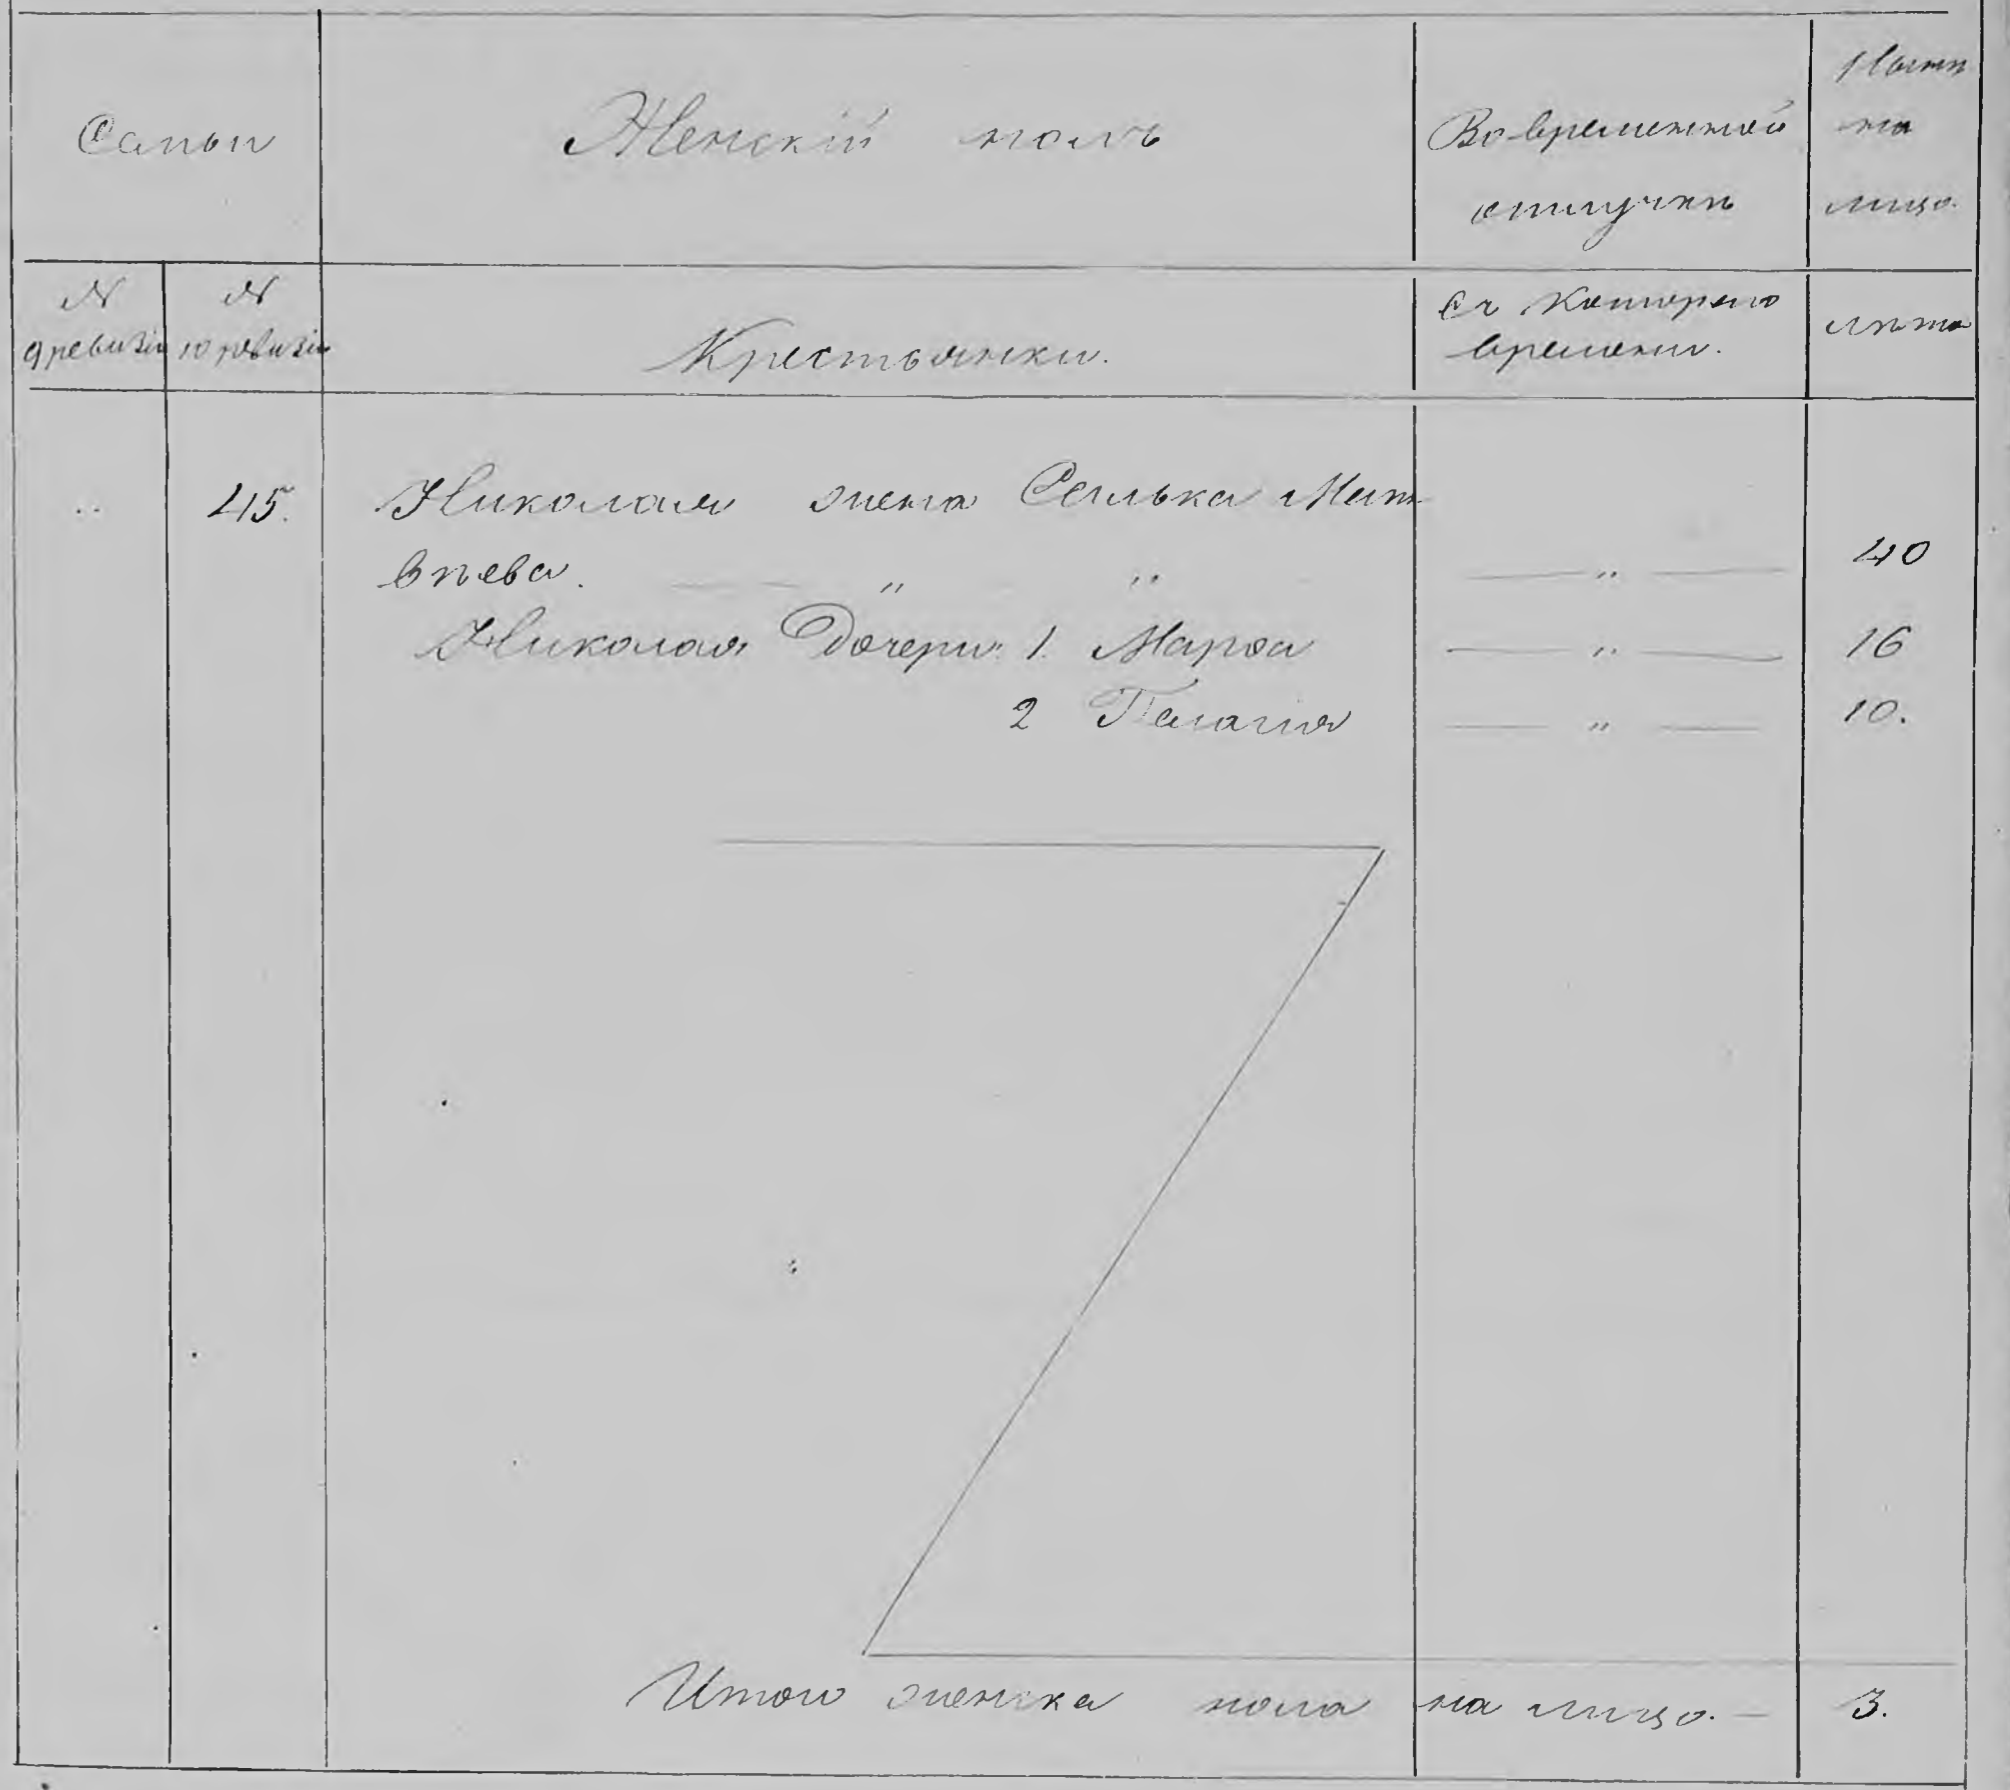 Семьи
Женскій полъ
Во временной
отлучкѣ
Нынѣ
на
лицо.
№
9 ревизіи
№
10 ревизіи
Крестьянки.
Съ котораго
времени.
лѣта
" 45. Николая жена Мат
вѣева. — " " — " — 40
Николая Дочери: 1. Марѳа — " — 16
2 Пелагия — " — 10.
Итого женска пола на лицо. — 3.